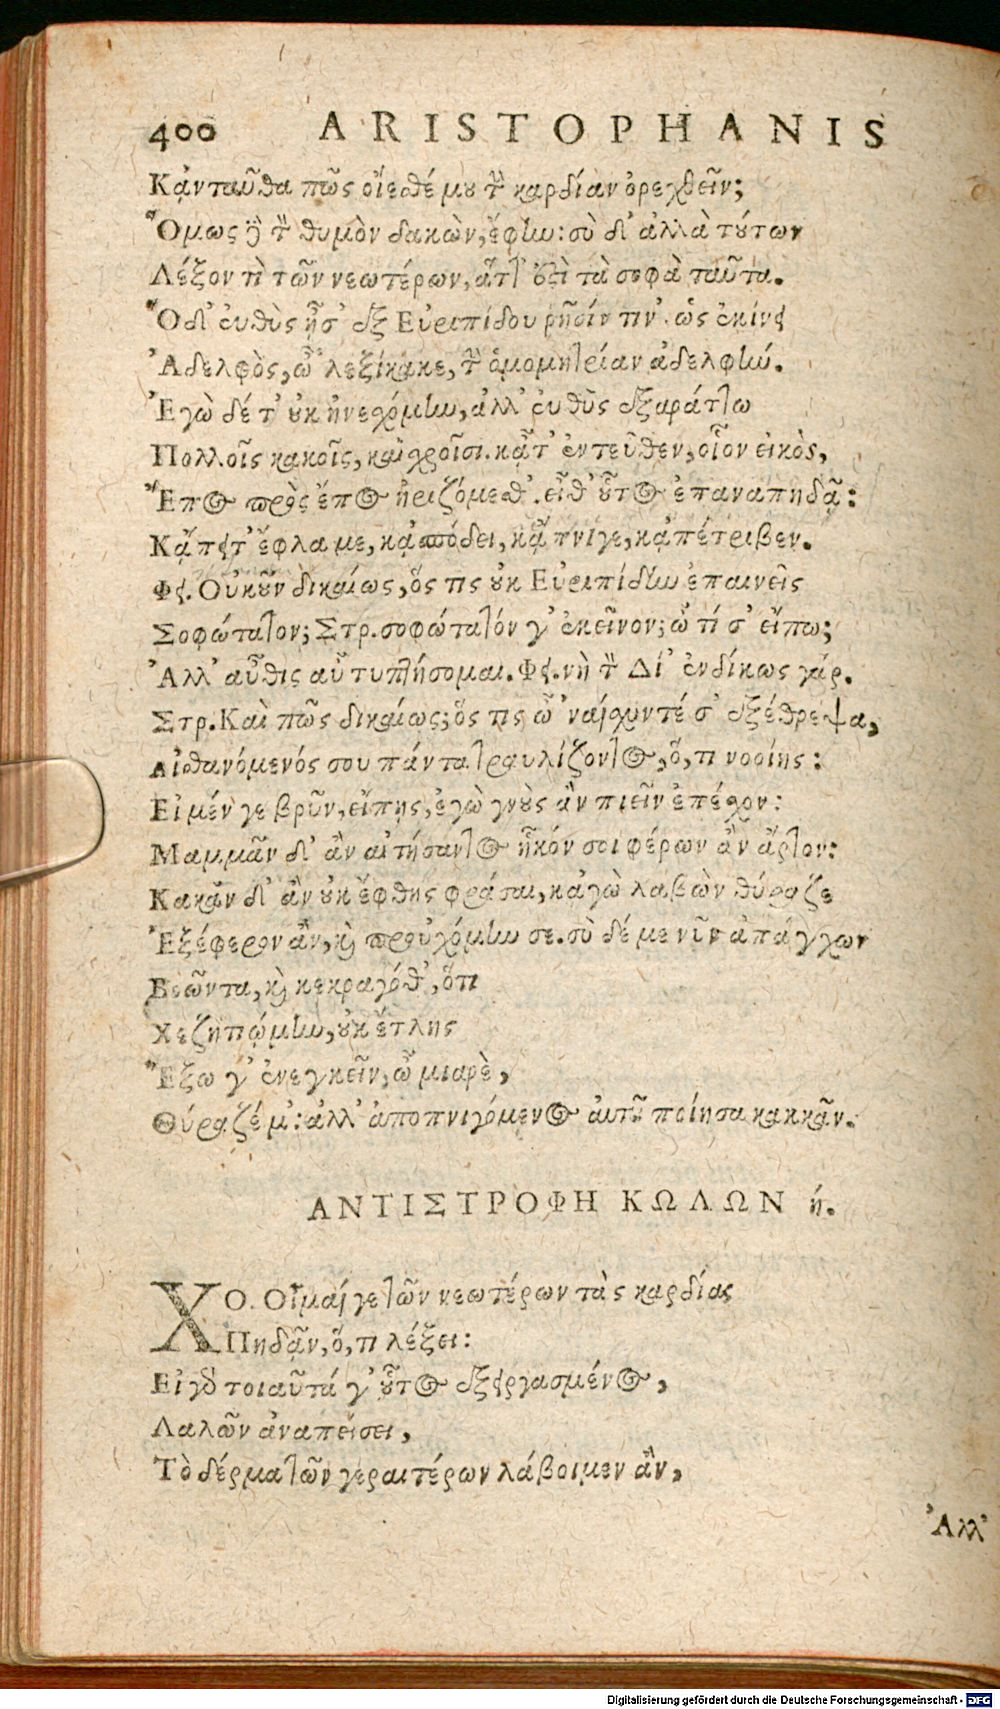 400 ARISTOPHANIS
Κᾀνταῦθα πῶς οἴεσθέ μου τὴν καρδίαν ὀρεχθεῖν;
Ὅμως δὲ τὸν θυμὸν δακὼν, ἔφην: σὺ δ' ἀλλὰ τούτων
Λέξον τὶ τῶν νεωτέρων, ἅττ' ἐστὶ τὰ σοφὰ ταῦτα.
Ὅδ' εὐθὺς ᾖσ' ἐξ Εὐριπίδου ῥῆσίν τιν'. ὡς ἐκίνει
Ἀδελφὸς, ὦ 'λεξίκακε, τὴν ὁμομητρίαν ἀδελφήν.
Ἐγὼ δέ τ' οὐκ ἠνεχόμην, ἀλλ' εὐθὺς ἐξαράττω
Πολλοῖς κακοῖς, καἰσχροῖσι. κᾆτ' ἐντεῦθεν, οἷον εἰκὸς,
Ἔπος πρὸς ἔπος ἠριζόμεθ'. εἶθ' οὗτος ἐπαναπηδᾷ:
Κᾄπειτ' ἔφλα με, κᾀσπόδει, κᾄπνιγε, κᾀπέτριβεν.
Φει. Οὐκοῦν δικαίως, ὅς τις οὐκ Εὐριπίδην ἐπαινεῖς
Σοφώτατον; Στρ. σοφώτατόν γ' ἐκεῖνον; ὦ τί σ' εἴπω;
Ἀλλ' αὖθις αὖ τυπτήσομαι. Φει. νὴ τὸν Δί' ἐνδίκως γάρ.
Στρ. Καὶ πῶς δικαίως; ὅς τις ὦ 'ναίσχυντέ σ' ἐξέθρεψα,
Αἰσθανόμενός σου πάντα τραυλίζοντος, ὅ, τι νοοίης:
Εἰ μέν γε βρῦν, εἴπῃς, ἐγὼ γνοὺς ἂν πιεῖν ἐπέσχον:
Μαμμᾶν δ' ἂν αἰτήσαντος ἧκόν σοι φέρων ἂν ἄρτον:
Κακᾶν δ' ἂν οὐκ ἔφθης φράσαι, κᾀγὼ λαβὼν θύραζε
Ἐξέφερον ἂν, καὶ προὐχόμην σε. σὺ δέ με νῦν ἀπάγχων
Βοῶντα, καὶ κεκραγόθ', ὅτι
Χεζητιῴμην, οὐκ ἔτλης
Ἔξω γ' ἐνεγκεῖν, ὦ μιαρὲ,
Θύραζέ μ': ἀλλ' ἀποπνιγόμενος αὐτοῦ ποίησα κακκᾶν.
ΑΝΤΙΣΤΡΟΦΗ ΚΩΛΩΝ ή.
ΧΟ. Οἶμαί γε τῶν νεωτέρων τὰς καρδίας
Πηδᾶν, ὅ, τι λέξει:
Εἰ γὰρ τοιαῦτά γ' οὗτος ἐξειργασμένος,
Λαλῶν ἀναπείσει,
Τὸ δέρμα τῶν γεραιτέρων λάβοιμεν ἂν,
Ἀλλ'
Digitalisierung gefördert durch die Deutsche Forschungsgemeinschaft - DFG